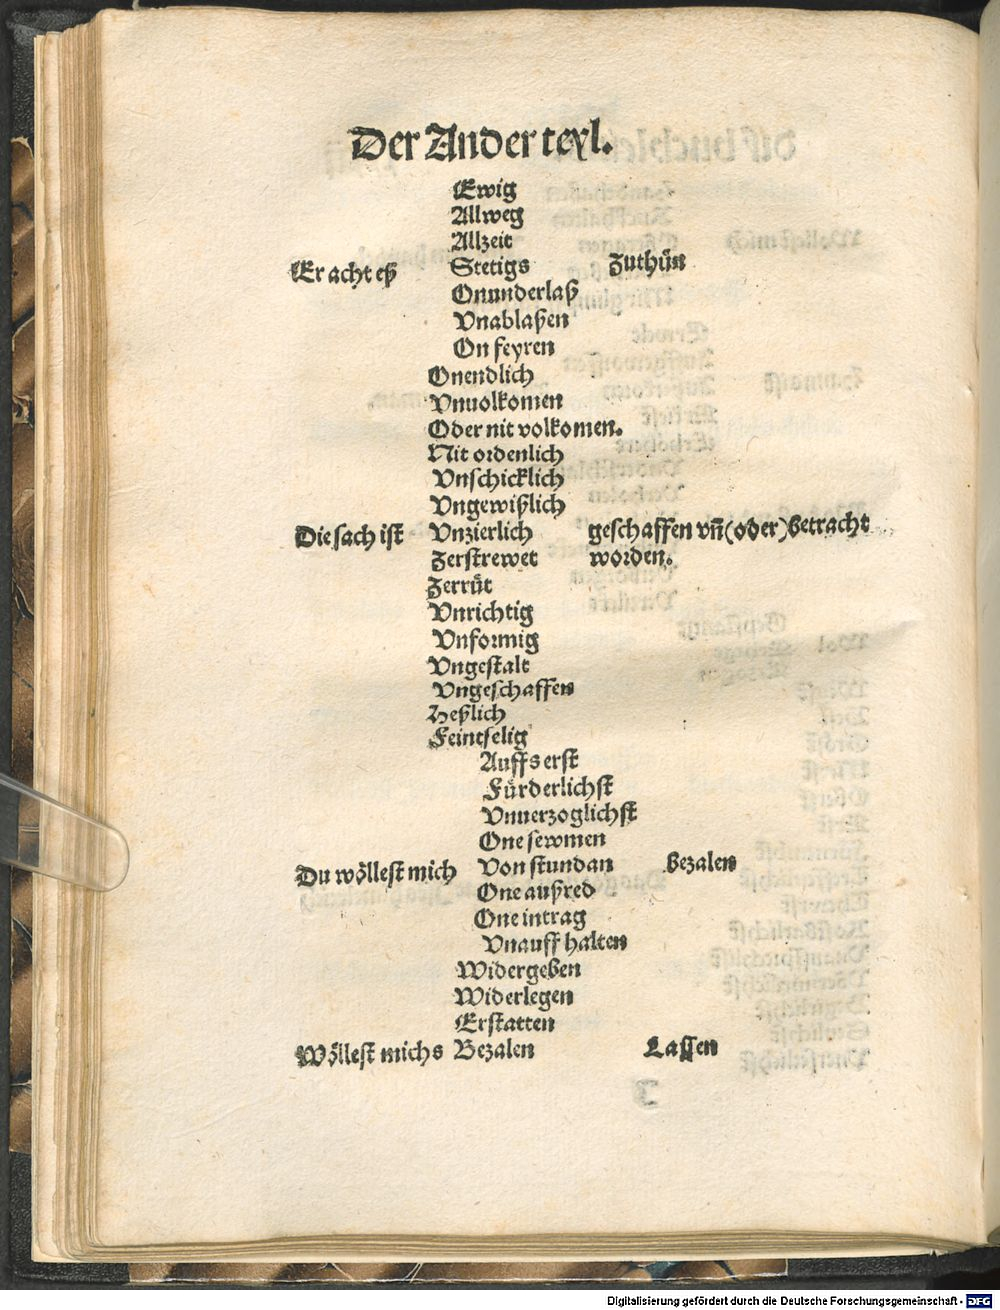 Der Ander teyl.
Ewig
Allweg
Allzeit
Er acht eß Stetigs Zuthün
Onunderlaß
Vnablaßen
On feyren
Onendlich
Vnuolkomen
Oder nit volkomen.
Nit ordenlich
Vnschicklich
Vngewißlich
Die sach ist Vnzierlich geschaffen vn̄ (oder) betracht
Zerstrewet worden.
Zerrüt
Vnrichtig
Vnformig
Vngestalt
Vngeschaffen
Heßlich
Feintselig
Auffs erst
Fürderlichst
Vnuerzoglichst
One sewmen
Du wöllest mich Von stundan bezalen
One außred
One intrag
Vnauff halten
Widergeben
Widerlegen
Erstatten
Wöllest michs Bezalen Lassen
Digitalisierung gefördert durch die Deutsche Forschungsgemeinschaft - DFG